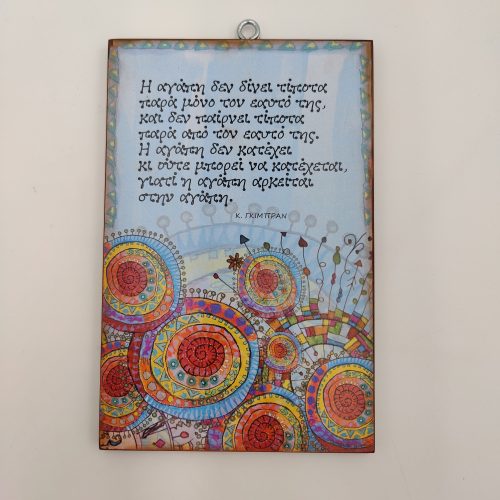 Η αγάπη δεν δίνει τίποτα
παρά μόνο τον εαυτό της,
και δεν παίρνει τίποτα
παρά από τον εαυτό της.
Η αγάπη δεν κατέχει
κι ούτε μπορεί να κατέχεται,
γιατί η αγάπη αρκείται
στην αγάπη.
Κ. ΓΚΙΜΠΡΑΝ